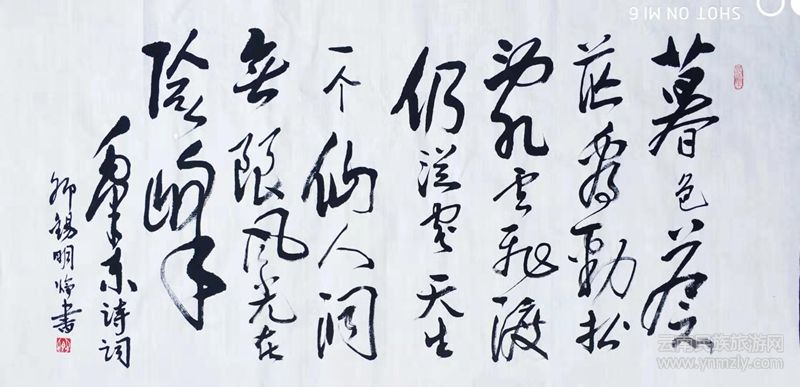 暮色苍
茫看劲松
乱云飞渡
仍从容天生
一个仙人洞
無限风光在
险峰
东诗词
锡明 书
SHOT ON MI 6
云南民族旅游网
www.ynmzly.com